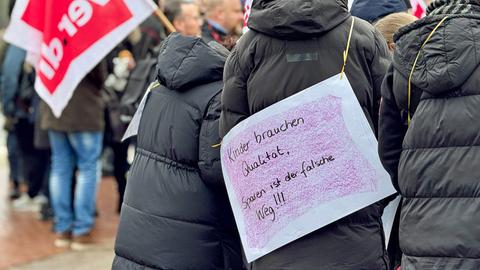 ver.di
Kinder brauchen
Qualität,
Sparen ist der falsche
Weg!!!